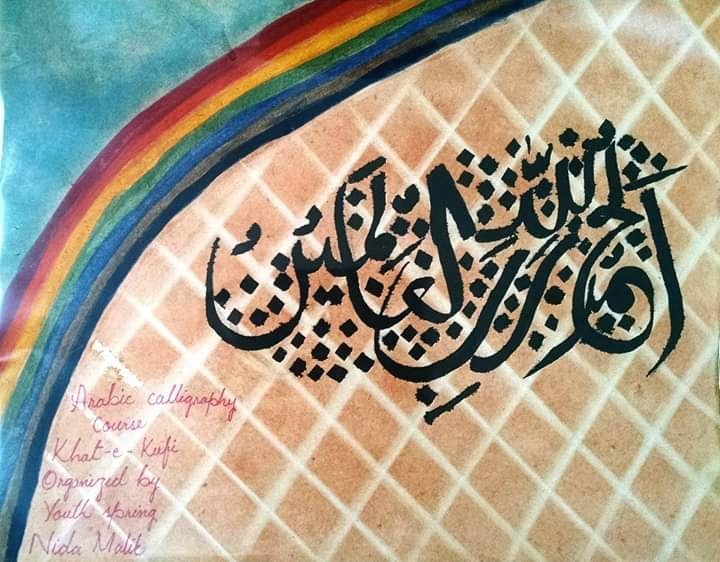 الحمد لله رب العالمين
Arabic calligraphy
Course
Khat-e-Kufi
Organized by
Youth spring
Nida Malik